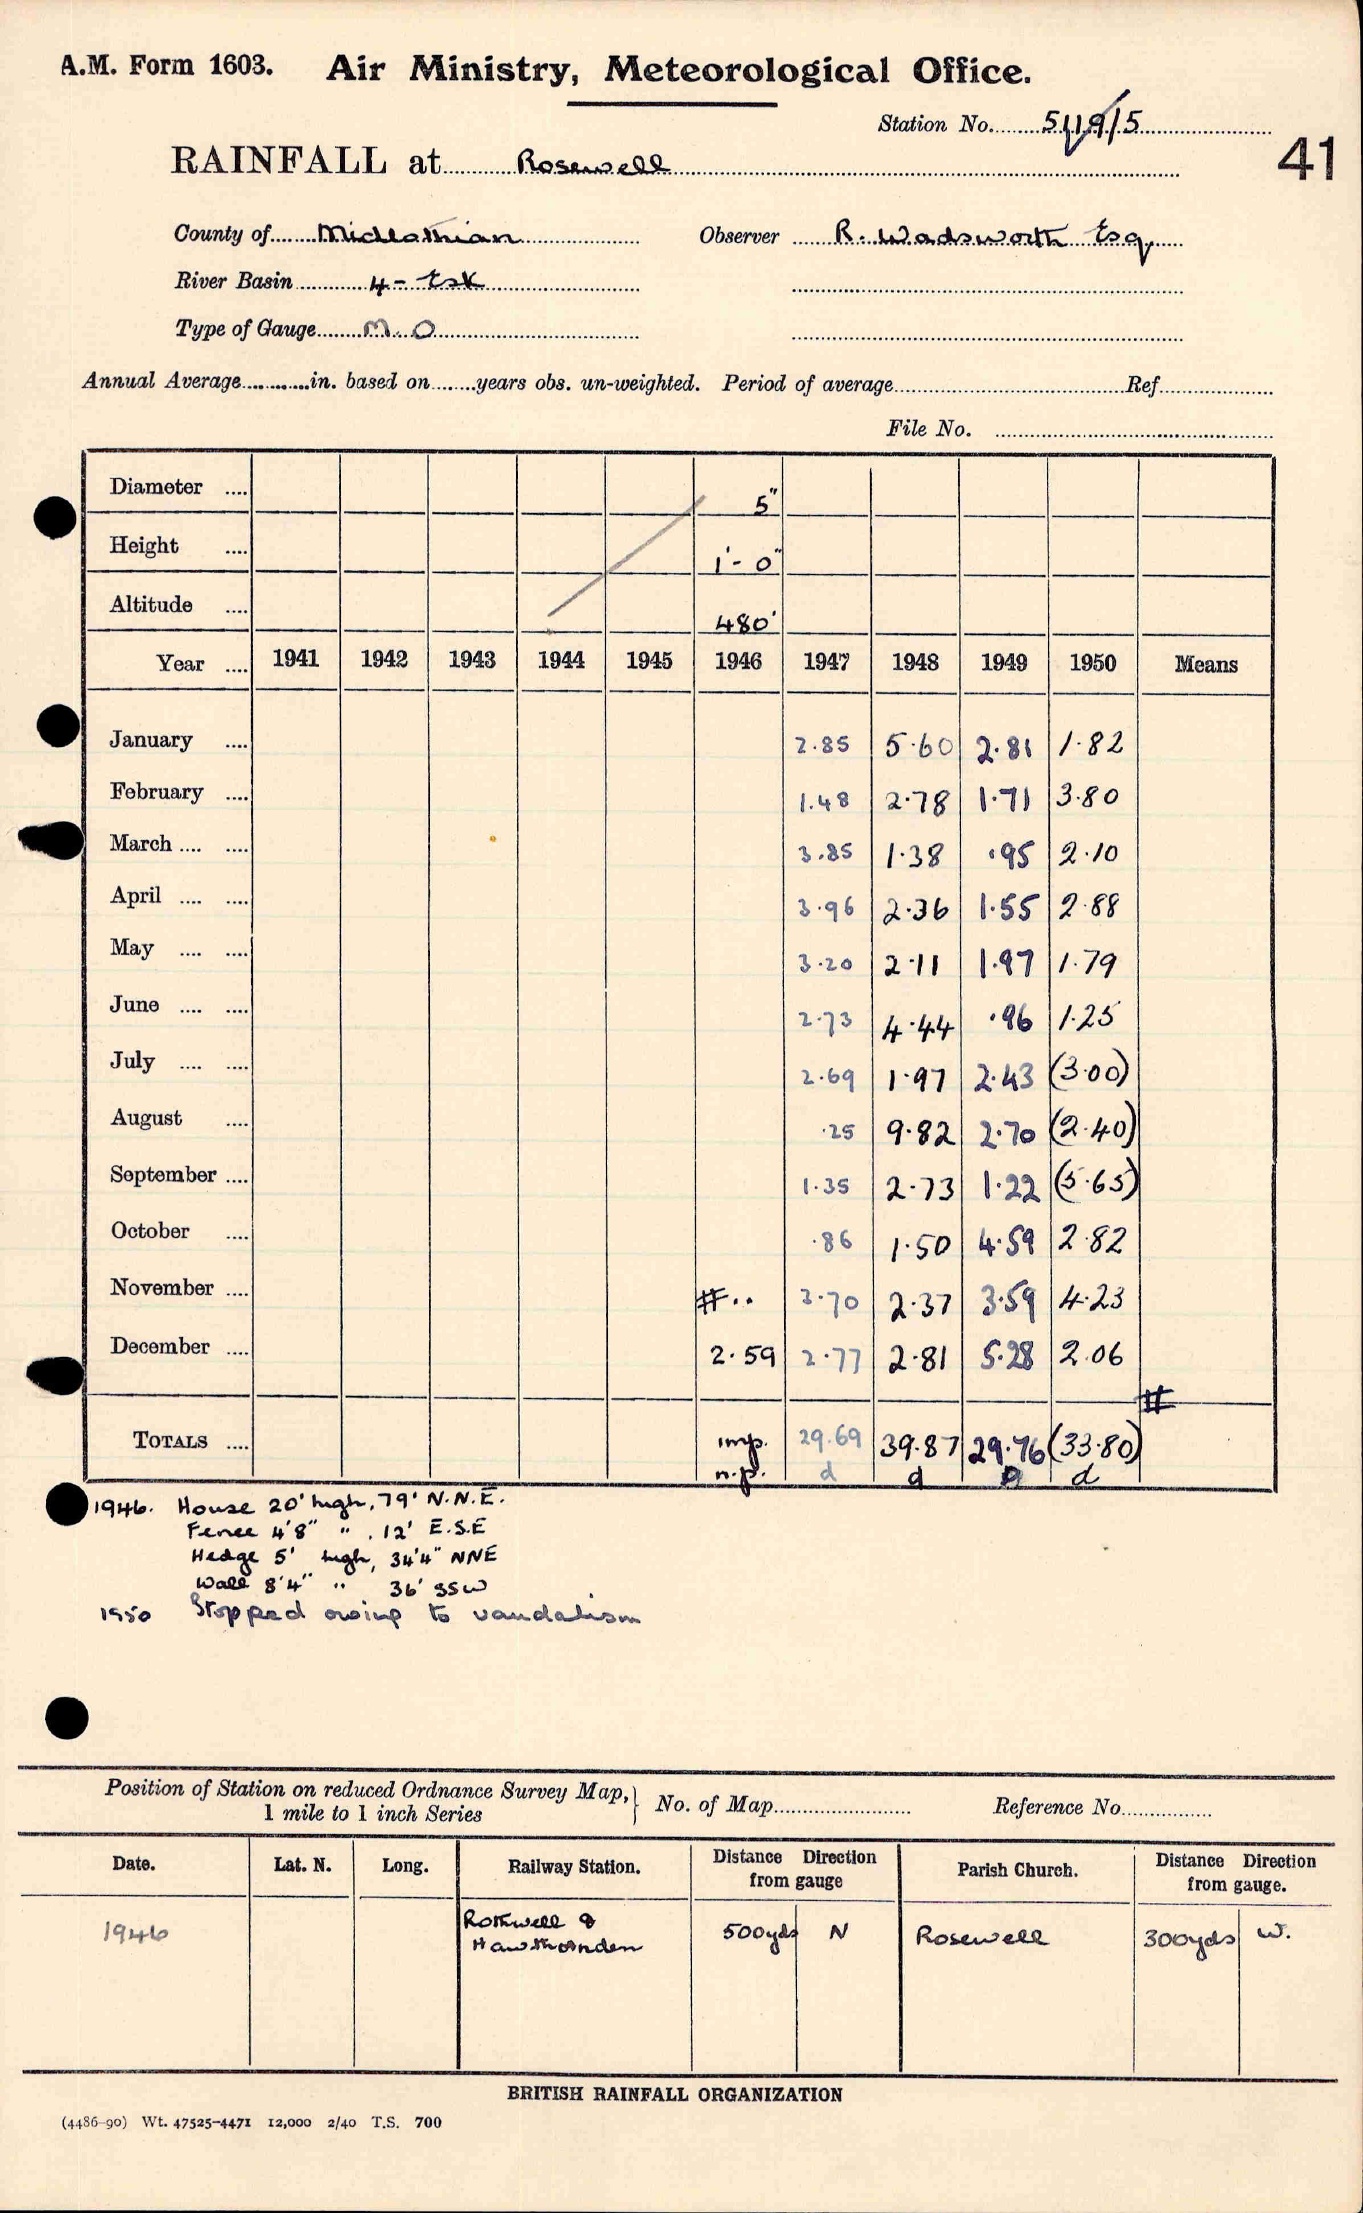 A.M. Form 1603. Air Ministry, Meteorological Office.
Station No. 5119/5
41
RAINFALL at Rosewell
County of Midlothian Observer R. Wadsworth Esq.
River Basin 4 - Esk
Type of Gauge M.O
Annual Average in. based on years obs. un-weighted. Period of average Ref
File No.
Diameter 5"
Height 1'- 0"
Altitude 480'
Year 1941 1942 1943 1944 1945 1946 1947 1948 1949 1950 Means
January 2.85 5.60 2.81 1.82
February 1.48 2.78 1.71 3.80
March 3.85 1.38 .95 2.10
April 3.96 2.36 1.55 2.88
May 3.20 2.11 1.97 1.79
June 2.73 4.44 .96 1.25
July 2.69 1.97 2.43 (3.00)
August .25 9.82 2.70 (2.40)
September 1.35 2.73 1.22 (5.65)
October .86 1.50 4.59 2.82
November #.. 3.70 2.37 3.59 4.23
December 2.59 2.77 2.81 5.28 2.06
#
TOTALS imp. 29.69 39.87 29.76 (33.80)
n.p. d d d d
1946. House 20' high, 79' N.N.E.
Fence 4'8" " , 12' E.S.E
Hedge 5' high, 34'4" NNE
Wall 8'4" " 36' SSW
1950 Stopped owing to vandalism
Position of Station on reduced Ordnance Survey Map, } No. of Map Reference No.
1 mile to 1 inch Series
Date. Lat. N. Long. Railway Station. Distance Direction from gauge Parish Church. Distance Direction from gauge.
1946 Rothwell & Hawthornden 500yds N Rosewell 300yds W.
BRITISH RAINFALL ORGANIZATION
(4486-90) Wt. 47525-4471 12,000 2/40 T.S. 700